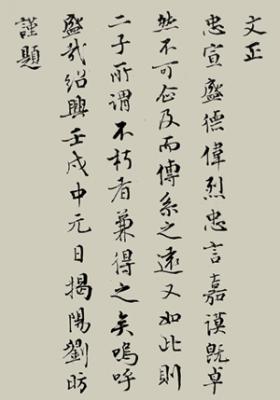 文正
忠宣盛德偉烈忠言嘉謨既卓
然不可企及而傳系之遠又如此則
二子所謂不朽者兼得之矣嗚呼
盛哉紹興壬戌中元日揭陽劉昉
謹題